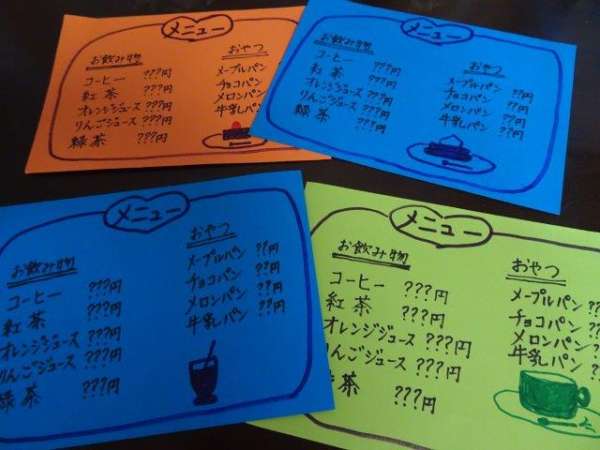 メニュー
お飲み物
コーヒー ???円
紅茶 ???円
オレンジジュース ???円
りんごジュース ???円
緑茶 ???円
おやつ
メープルパン ??円
チョコパン ??円
メロンパン ??円
牛乳パン ??円
メニュー
お飲み物
コーヒー ???円
紅茶 ???円
オレンジジュース ???円
りんごジュース ???円
緑茶 ???円
おやつ
メープルパン ??円
チョコパン ??円
メロンパン ??円
牛乳パン ??円
メニュー
お飲み物
コーヒー ???円
紅茶 ???円
オレンジジュース ???円
りんごジュース ???円
緑茶 ???円
おやつ
メープルパン ??円
チョコパン ??円
メロンパン ??円
牛乳パン ??円
メニュー
お飲み物
コーヒー ???円
紅茶 ???円
オレンジジュース ???円
りんごジュース ???円
茶 ???円
おやつ
メープルパン ??
チョコパン ??
メロンパン ??
牛乳パン ??